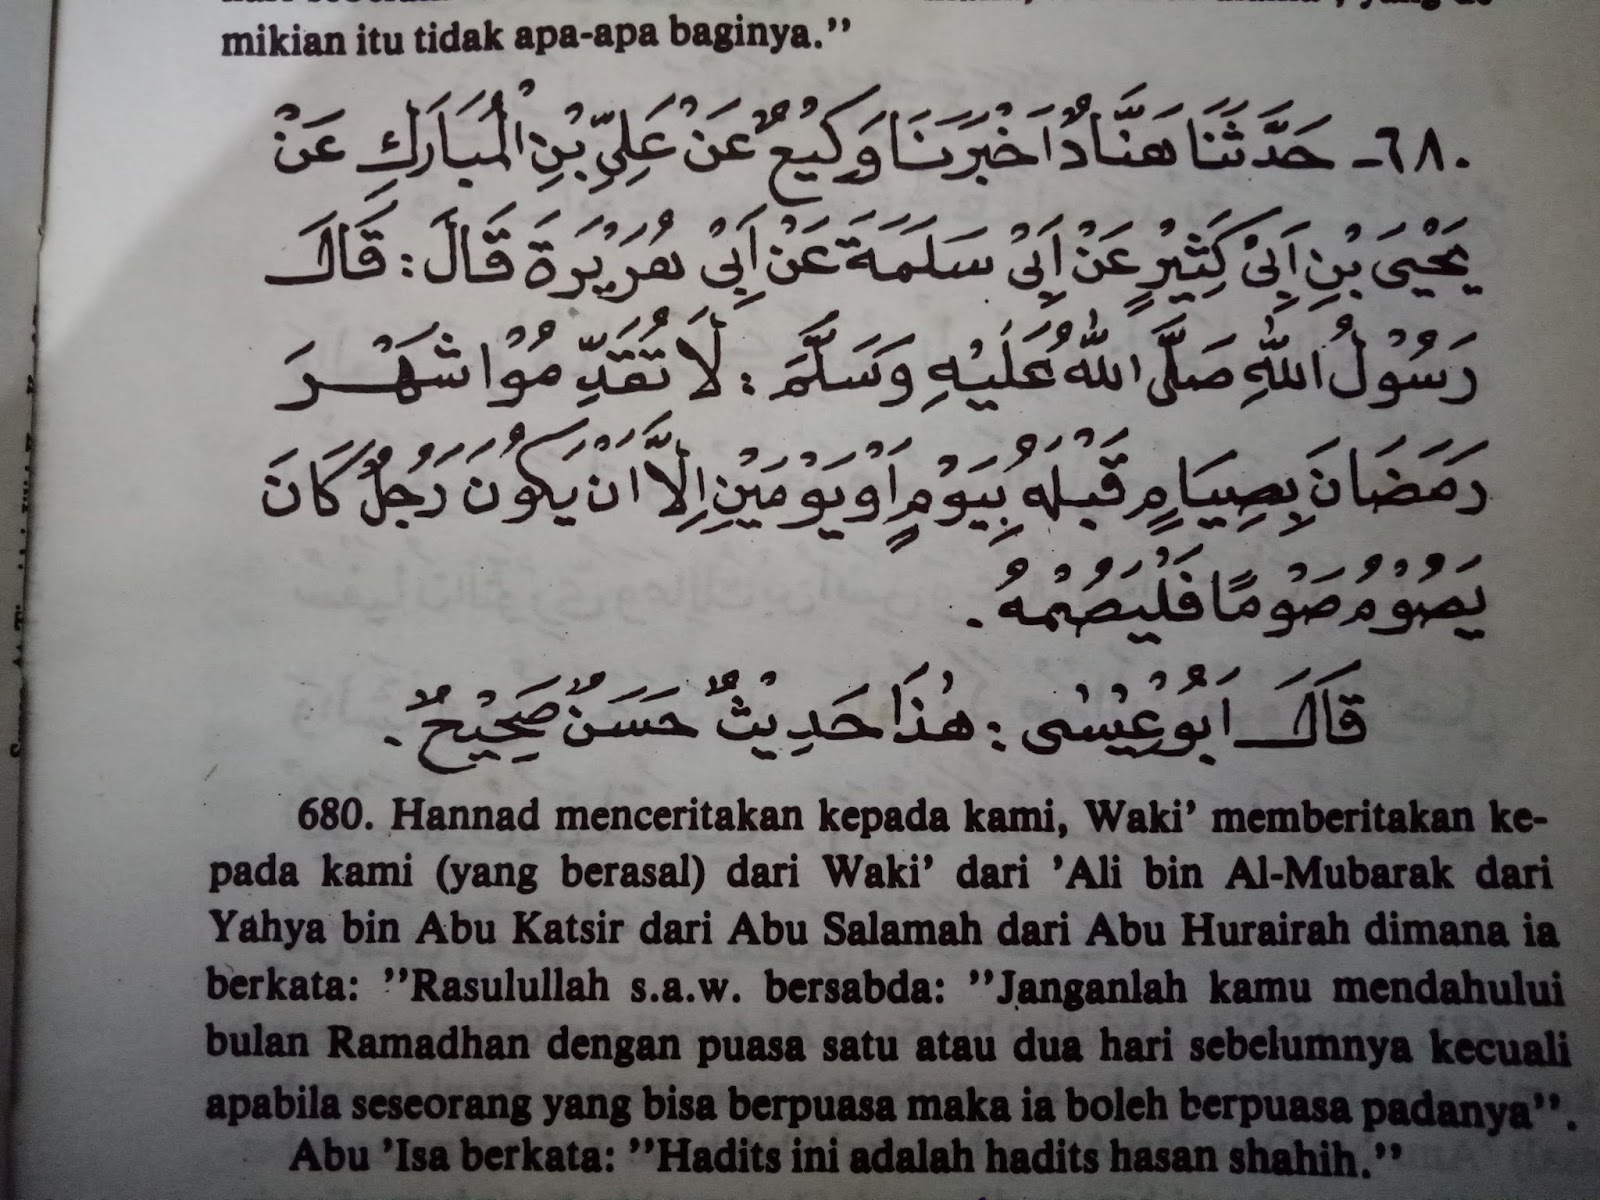 mikian itu tidak apa-apa baginya.”
٦٨٠- حَدَّثَنَا هَنَّادٌ اَخْبَرَنَا وَكِيْعٌ عَنْ عَلِيِّ بْنِ الْمُبَارَكِ عَنْ
يَحْيَى بْنِ اَبِىْ كَثِيْرٍ عَنْ اَبِىْ سَلَمَةَ عَنْ اَبِىْ هُرَيْرَةَ قَالَ : قَالَ
رَسُوْلُ اللهِ صَلَّى اللهُ عَلَيْهِ وَسَلَّمَ : لَا تَقَدِّمُوْا شَهْرَ
رَمَضَانَ بِصِيَامٍ قَبْلَهُ بِيَوْمٍ اَوْ يَوْمَيْنِ اِلَّا اَنْ يَكُوْنَ رَجُلٌ كَانَ
يَصُوْمُ صَوْمًا فَلْيَصُمْهُ .
قَالَ اَبُوْ عِيْسٰى : هٰذَا حَدِيْثٌ حَسَنٌ صَحِيْحٌ .
680. Hannad menceritakan kepada kami, Waki’ memberitakan ke-
pada kami (yang berasal) dari Waki’ dari ’Ali bin Al-Mubarak dari
Yahya bin Abu Katsir dari Abu Salamah dari Abu Hurairah dimana ia
berkata: ”Rasulullah s.a.w. bersabda: ”Janganlah kamu mendahului
bulan Ramadhan dengan puasa satu atau dua hari sebelumnya kecuali
apabila seseorang yang bisa berpuasa maka ia boleh berpuasa padanya”.
Abu ’Isa berkata: ”Hadits ini adalah hadits hasan shahih.”